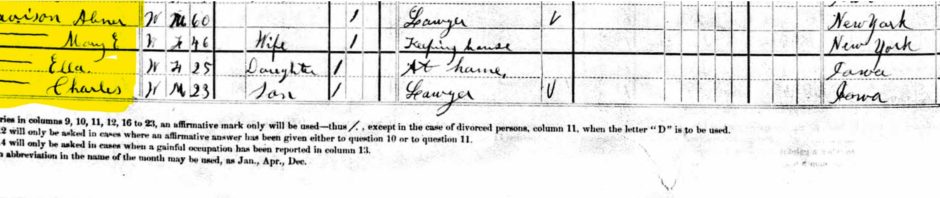 Abner W M 60 / Lawyer V New York
— Mary E W F 46 Wife / Keeping house New York
— Ella. W F 25 Daughter / At home, Iowa
— Charles W M 23 Son / Lawyer V Iowa
ries in columns 9, 10, 11, 12, 16 to 23, an affirmative mark only will be used—thus /. , except in the case of divorced persons, column 11, when the letter "D" is to be used.
2 will only be asked in cases where an affirmative answer has been given either to question 10 or to question 11.
4 will only be asked in cases when a gainful occupation has been reported in column 13.
abbreviation in the name of the month may be used, as Jan., Apr., Dec.